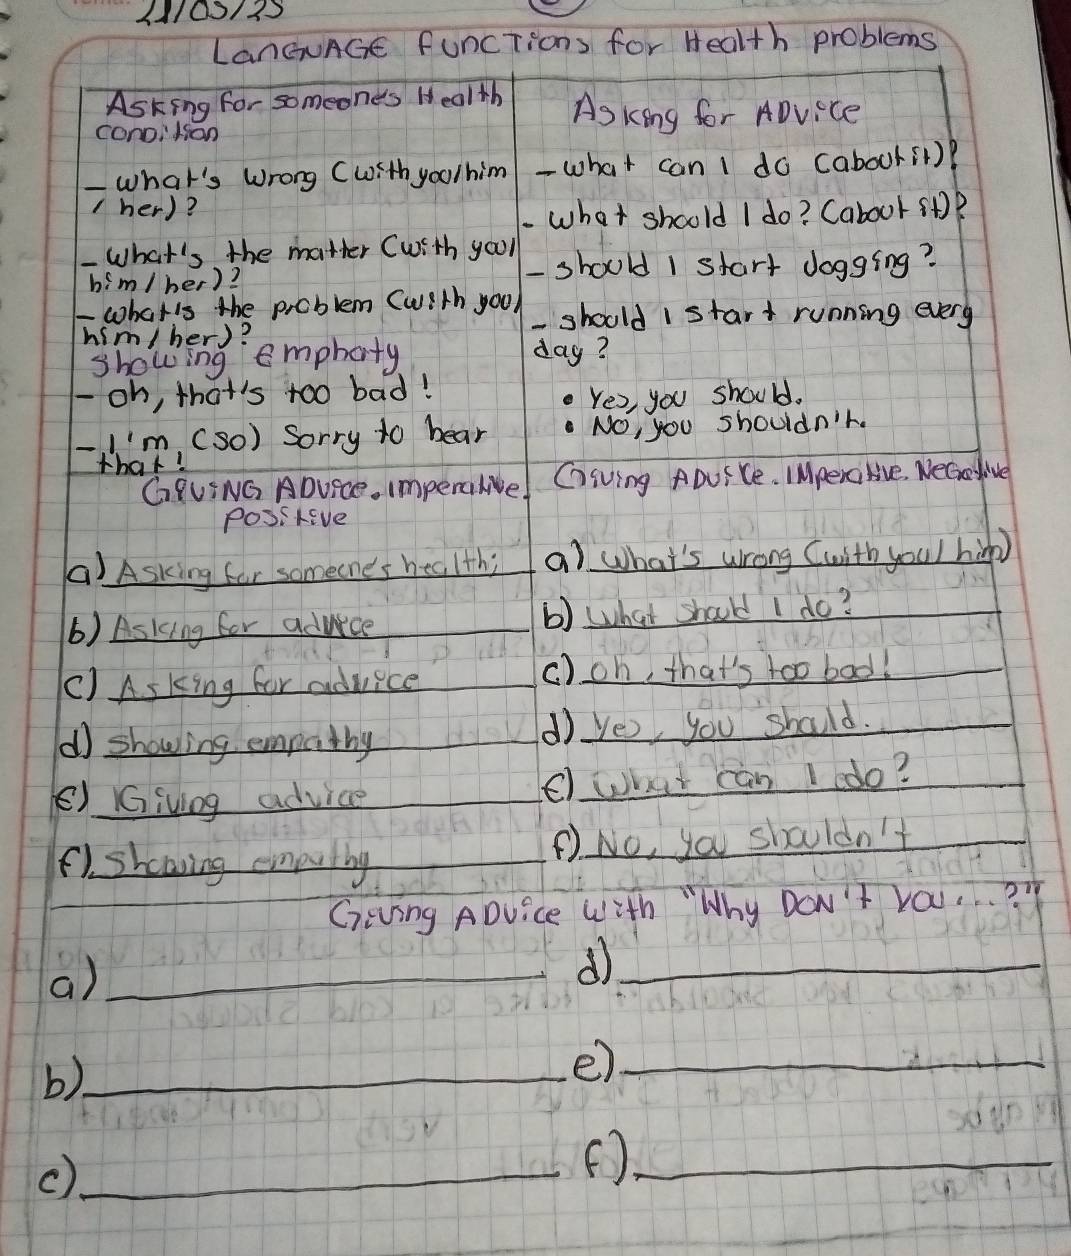 21/05/25
LANGUAGE FUNCTIONS for Health problems
Asking for someone's Health
condition
- what's wrong (with you/him
/ her)?
- what's the matter (with you/
him / her)?
- what's the problem (with you/
him / her)?
showing emphaty
- oh, that's too bad!
- I'm (so) sorry to hear
that!
Asking for Advice
- what can I do (about it)?
- what should I do? (about it)?
- should I start jogging?
- should I start running every
day?
• Yes, you should.
• No, you shouldn't.
Giving Advice. imperative.
positive
Giving Advice. imperative. Negative
a) Asking for someone's health:
a) What's wrong (with you/ him)
b) Asking for advice
b) What should I do?
c) Asking for advice
c) oh, that's too bad!
d) showing empathy
d) yes, you should.
e) Giving advice
e) What can I do?
f) showing empathy
f) No, you shouldn't
Giving ADvice with "Why DON't you...?"
a)
d)
b)
e)
c)
f)